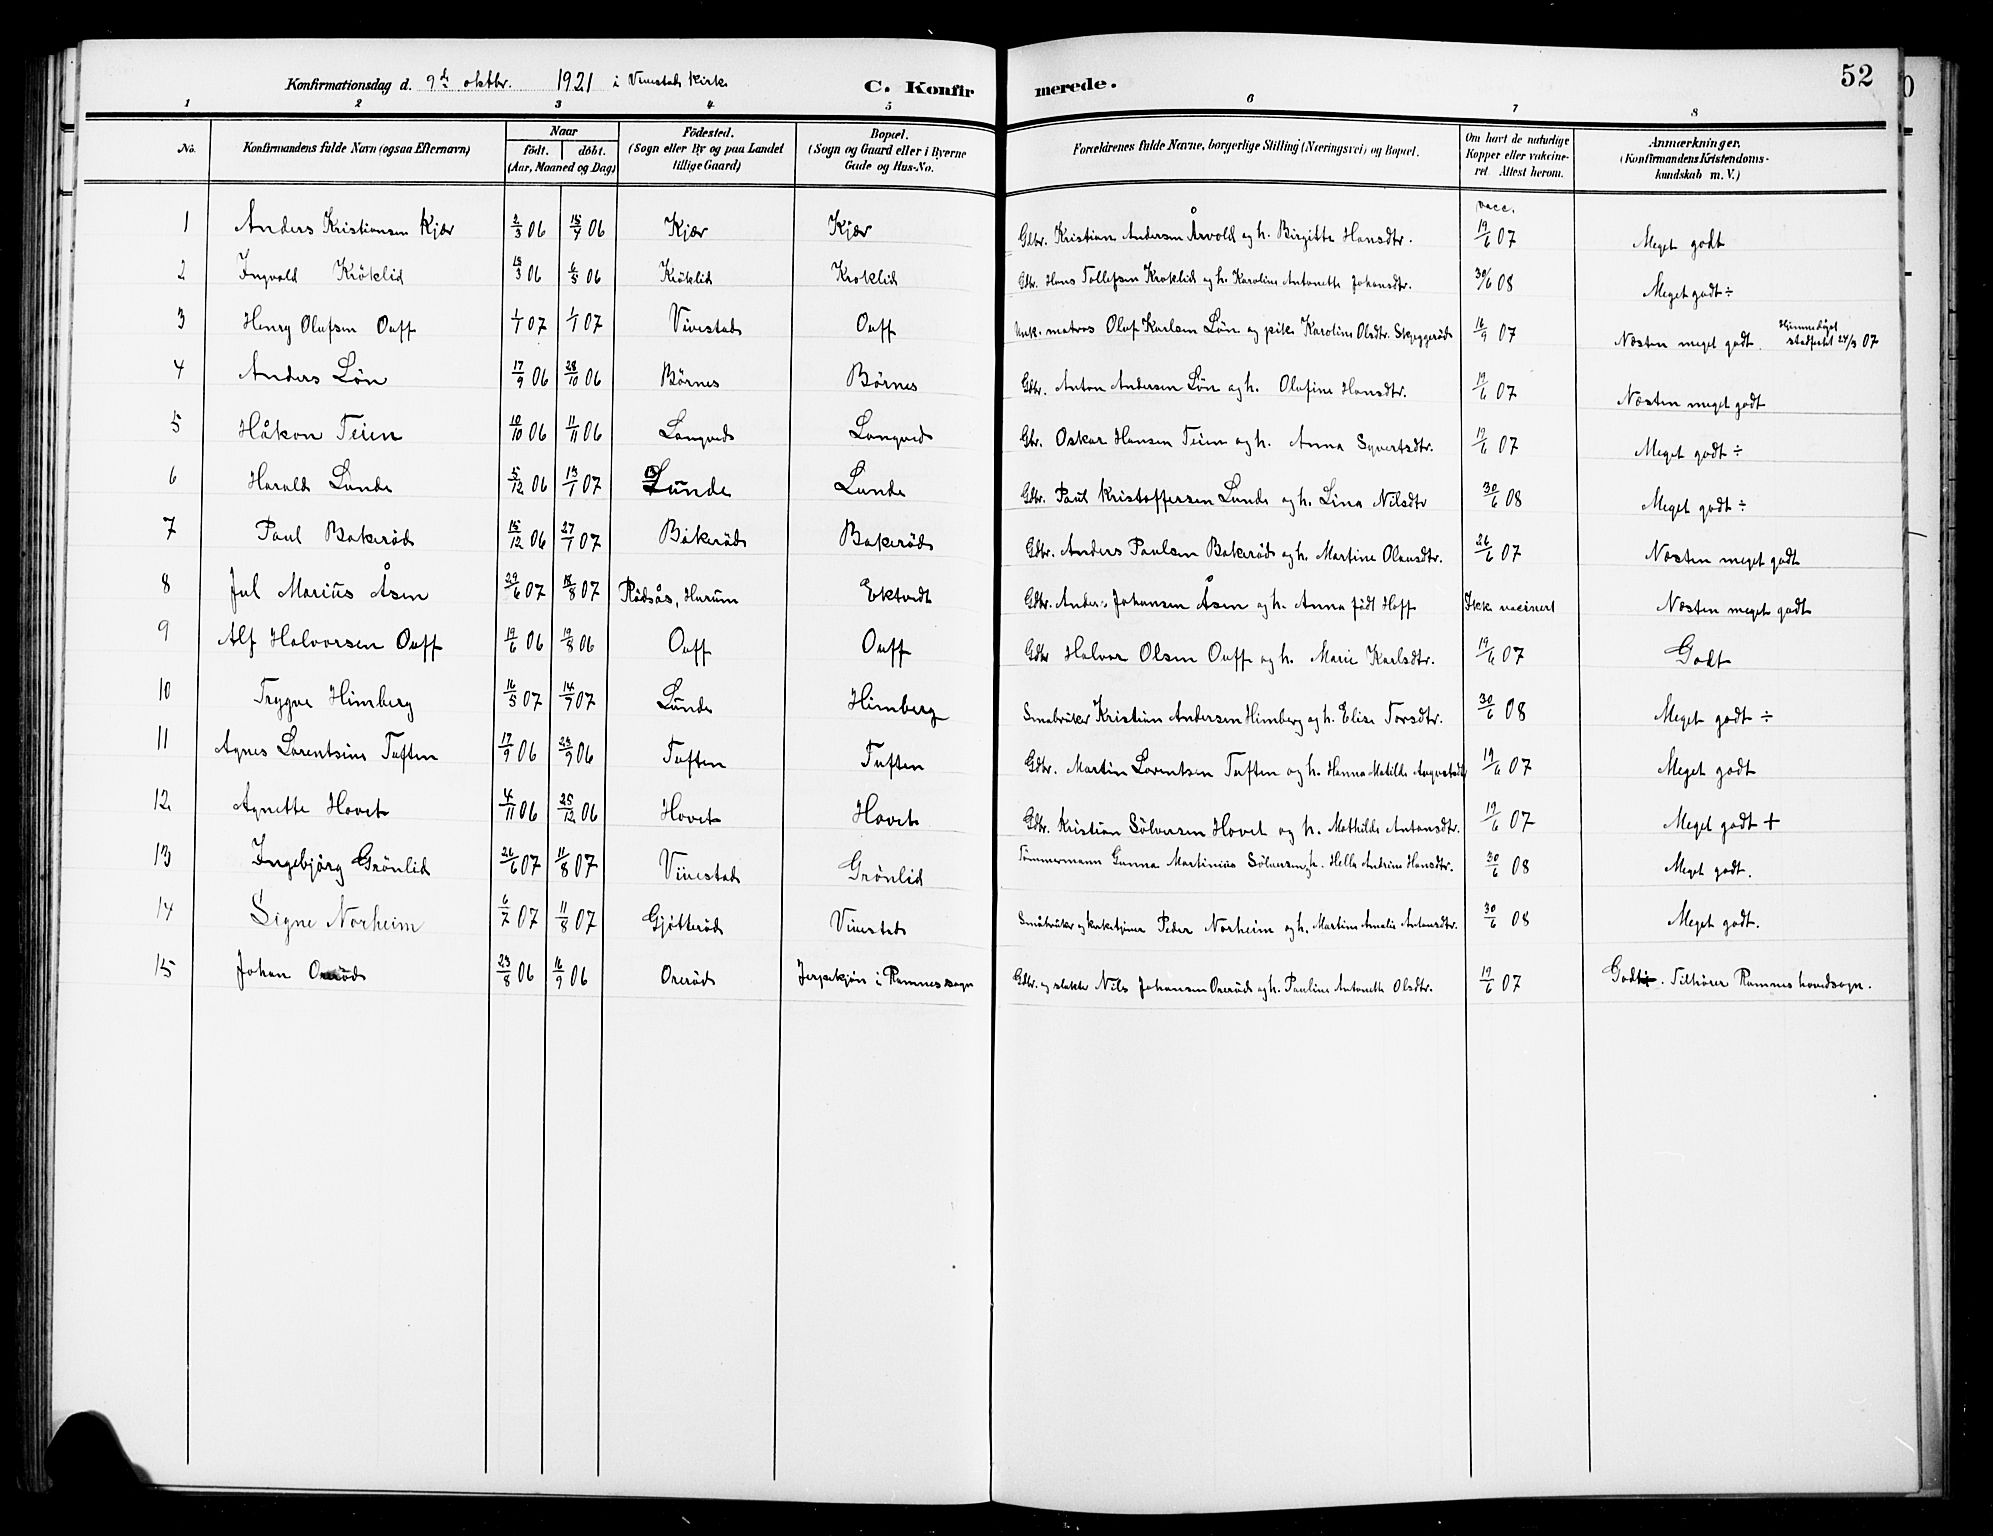 52
Konfirmationsdag d. 9de oktbr. 1921 i Vivestad Kirke C. Konfirmerede.
1 2 3 4 5 6 7 8
No. Konfirmandens fulde Navn (ogsaa Efternavn) Naar födt. döbt. (Aar, Maaned og Dag) Födested. (Sogn eller By og paa Landet tillige Gaard) Bopæl. (Sogn og Gaard eller i Byerne Gade og Hus-No. Forældrenes fulde Navne, borgerlige Stilling (Næringsvei) og Bopæl. Om havt de naturlige Kopper eller vakcineret Attest herom. Anmærkninger. (Konfirmandens Kristendomskundskab m. V.)
vacc.
1 Anders Kristiansen Kjær 2/3 06 15/7 06 Kjær Kjær Gbr. Kristian Andersen Årvold og h. Birgitte Hansdtr. 19/6 07 Meget godt
2 Ingvald Kröklid 13/3 06 6/5 06 Kröklid Kroklid Gbr. Hans Tollefsen Kroklid og h. Karoline Antonette Johansdtr. 30/6 08 Meget godt ÷
3 Henry Olafsen Ouff 1/1 07 1/1 07 Vivestad Ouff Unk. matros Olaf Karlsen Løn og pike Karoline Olsdtr. Skjeggerød 16/9 07 Næsten meget godt. Hjemmedøpt stadfestet 24/3 07
4 Anders Løn 17/9 06 28/10 06 Börnes Börnes Gbr. Anton Andersen Løn og h. Olafine Hansdtr. 19/6 07 Næsten meget godt
5 Håkon Teien 10/10 06 11/11 06 Langved Langved Gbr. Oskar Hansen Teien og h. Anna Syvertsdtr. 19/6 07 Meget godt ÷
6 Harald Lunde 5/12 06 13/1 07 Lunde Lunde Gbr. Paul Kristoffersen Lunde og h. Lina Nilsdtr 30/6 08 Meget godt ÷
7 Paul Bakeröd 15/12 06 27/1 07 Bakeröd Bakeröd Gbr. Anders Paulsen Bakeröd og h. Martine Olausdtr. 26/6 07 Næsten meget godt
8 Jul Marius Åsen 29/6 07 18/8 07 Rödsås, Hurum Ektvedt Gbr. Anders Johansen Åsen og h. Anna født Hoff Ikke vacinert Næsten meget godt
9 Alf Halvorsen Ouff 19/6 06 19/8 06 Ouff Ouff Gbr Halvor Olsen Ouff og h. Marie Karlsdtr. 19/6 07 Godt
10 Trygve Himberg 16/5 07 14/7 07 Lunde Himberg Småbruker Kristian Andersen Himberg og h. Elise Torsdtr. 30/6 08 Meget godt ÷
11 Agnes Lorentsine Tuften 17/9 06 23/9 06 Tuften Tuften Gbr. Martin Lorentsen Tuften og h. Hanna Matilde 19/6 07 Meget godt
12 Agnette Hovet 4/11 06 25/12 06 Hovet Hovet Gbr. Kristian Sölversen Hovet og h. Mathilde Antonsdtr. 19/6 07 Meget godt +
13 Ingebjörg Grönlid 26/6 07 11/8 07 Vivestad Grönlid Tömmermann Gunna Martinius Sölversen og h. Hella Andrine Hansdtr. 30/6 08 Meget godt.
14 Signe Norheim 6/7 07 11/8 07 Gjötteröd Vivestad Småbruker og kirketjener Peder Norheim og h. Martine Amalie Antonsdtr. 30/6 08 Meget godt.
15 Johan Oreröd 23/8 06 16/9 06 Oreröd Jerpekjøn i Ramnes sogn Gbr. og slakter Nils Johansen Oreröd og h. Pauline Antonette Olsdtr. 19/6 07 Godt. Tilhører Ramnes hovedsogn.